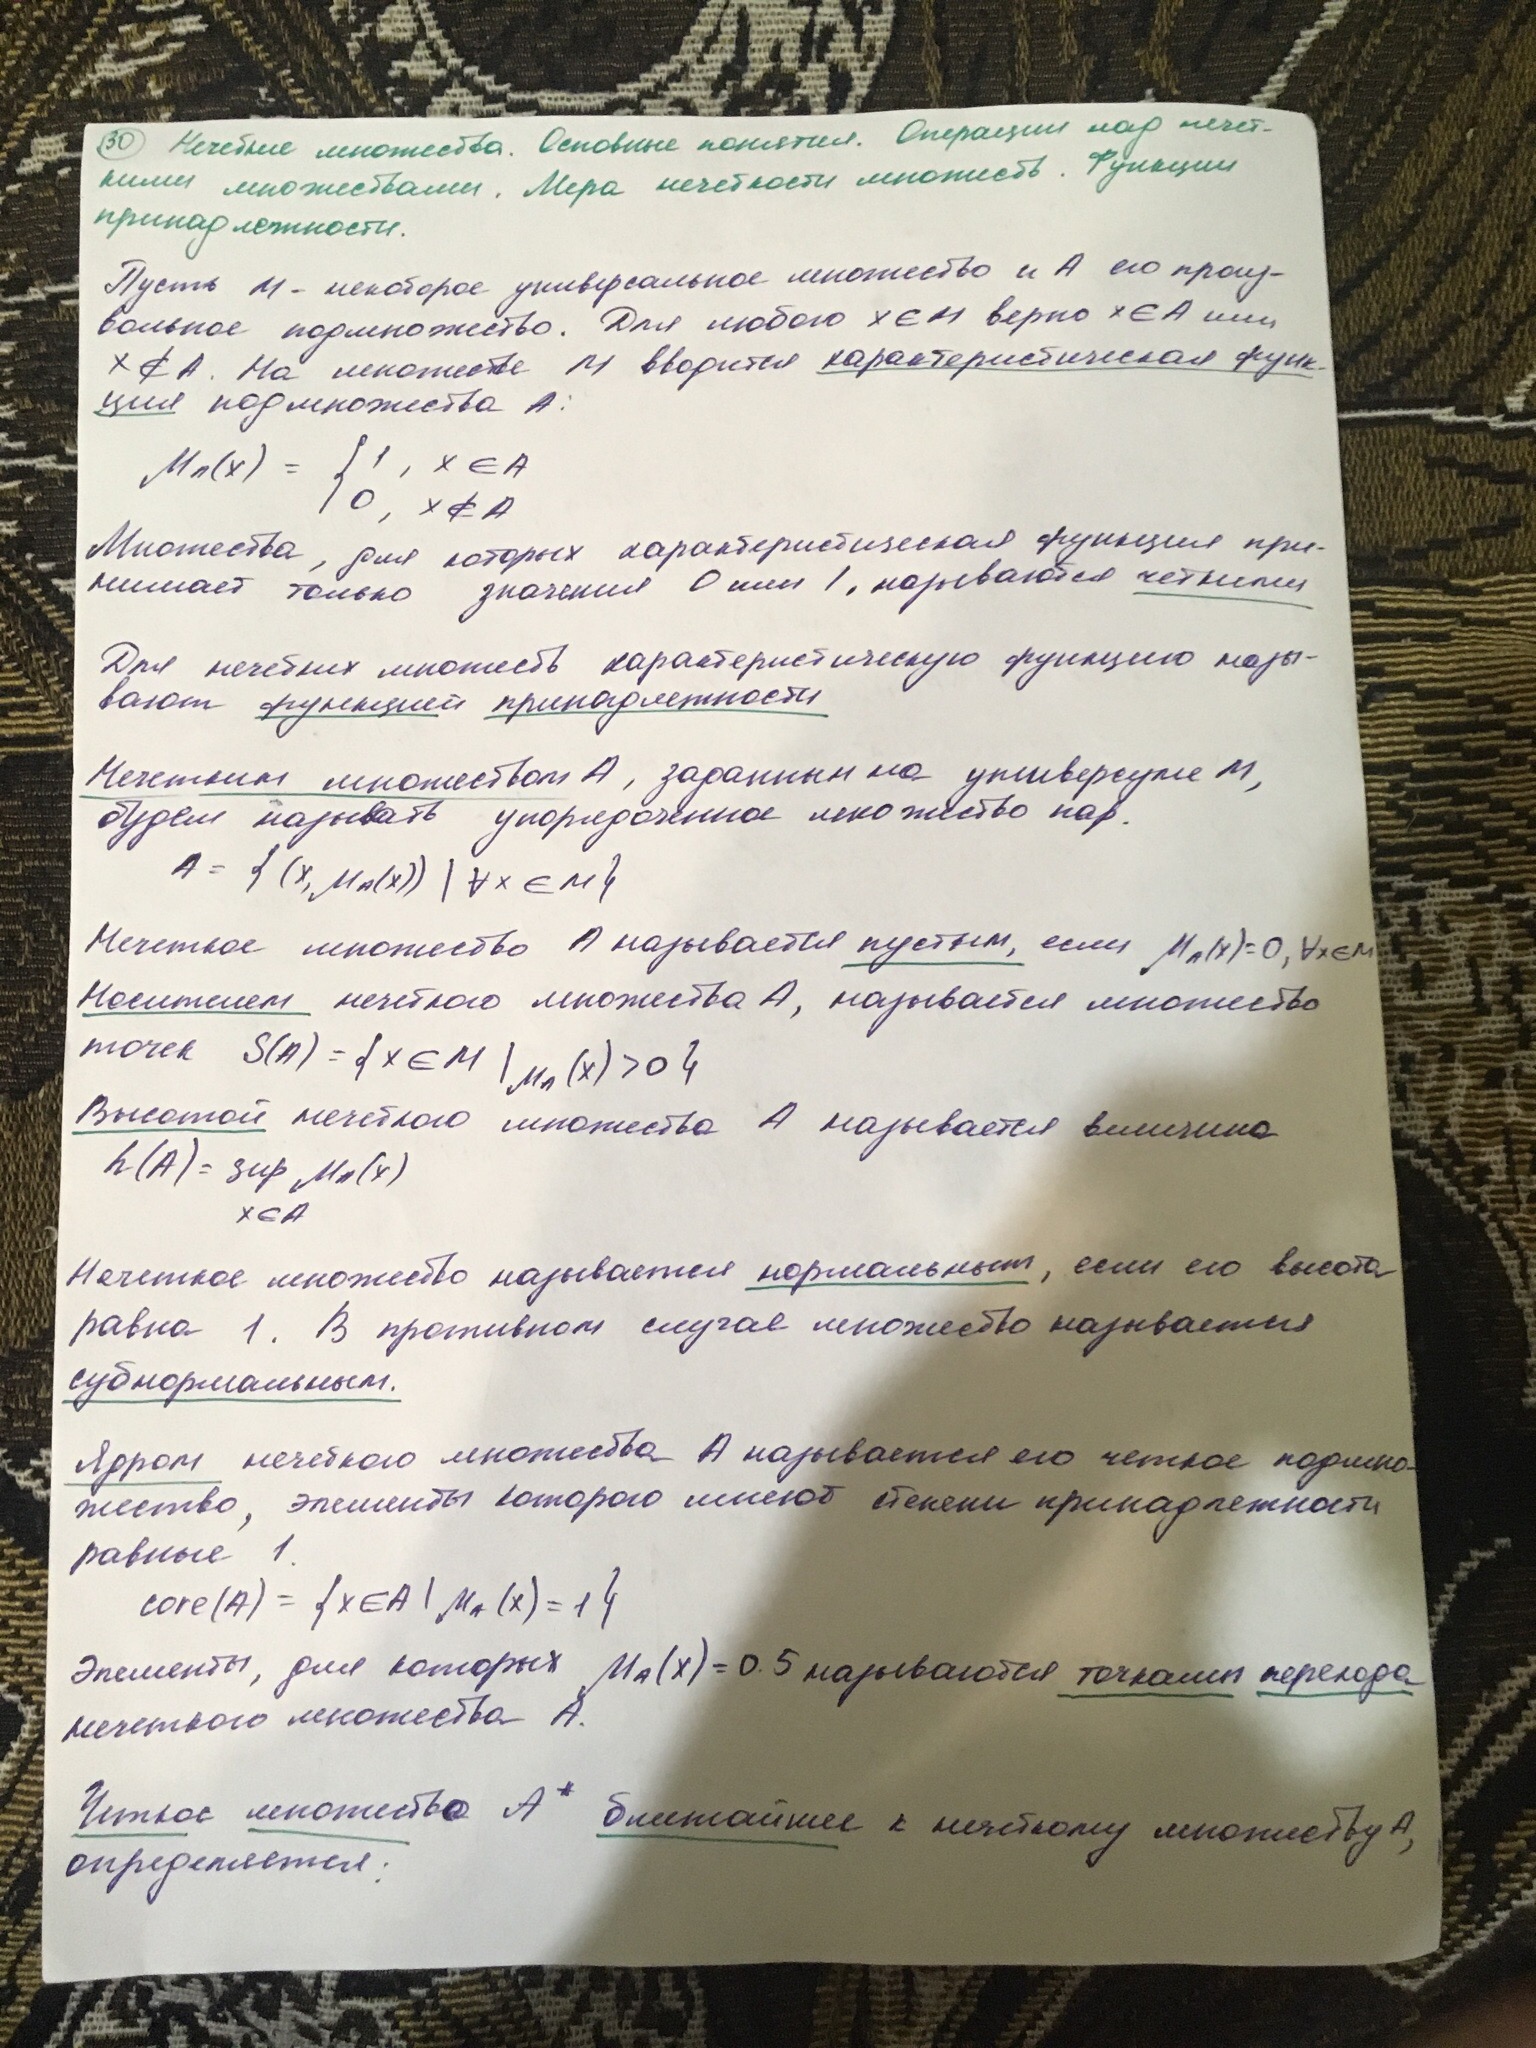 30 Нечеткие множества. Основные понятия. Операции над нечет-
кими множествами. Мера нечеткости множеств. Функции
принадлежности.
Пусть M - некоторое универсальное множество и A его произ-
вольное подмножество. Для любого x ∈ M верно x ∈ A или
x ∉ A. На множестве M вводится характеристическая функ-
ция подмножества A:
μ_A(x) = { 1, x ∈ A
0, x ∉ A
Множества, для которых характеристическая функция при-
нимает только значения 0 или 1, называются четкими
Для нечетких множеств характеристическую функцию назы-
вают функцией принадлежности
Нечетким множеством A, заданным на универсуме M,
будем называть упорядоченное множество пар.
A = {(x, μ_A(x)) | ∀x ∈ M}
Нечеткое множество A называется пустым, если μ_A(x)=0, ∀x∈M
Носителем нечеткого множества A, называется множество
точек S(A) = {x ∈ M | μ_A(x) > 0}
Высотой нечеткого множества A называется величина
h(A) = sup μ_A(x)
x∈A
Нечеткое множество называется нормальным, если его высота
равна 1. В противном случае множество называется
субнормальным.
Ядром нечеткого множества A называется его четкое подмно-
жество, элементы которого имеют степени принадлежности
равные 1.
core(A) = {x∈A | μ_A(x) = 1}
Элементы, для которых μ_A(x) = 0.5 называются точками перехода
нечеткого множества A.
Четкое множество A* ближайшее к нечеткому множеству A,
определяется: